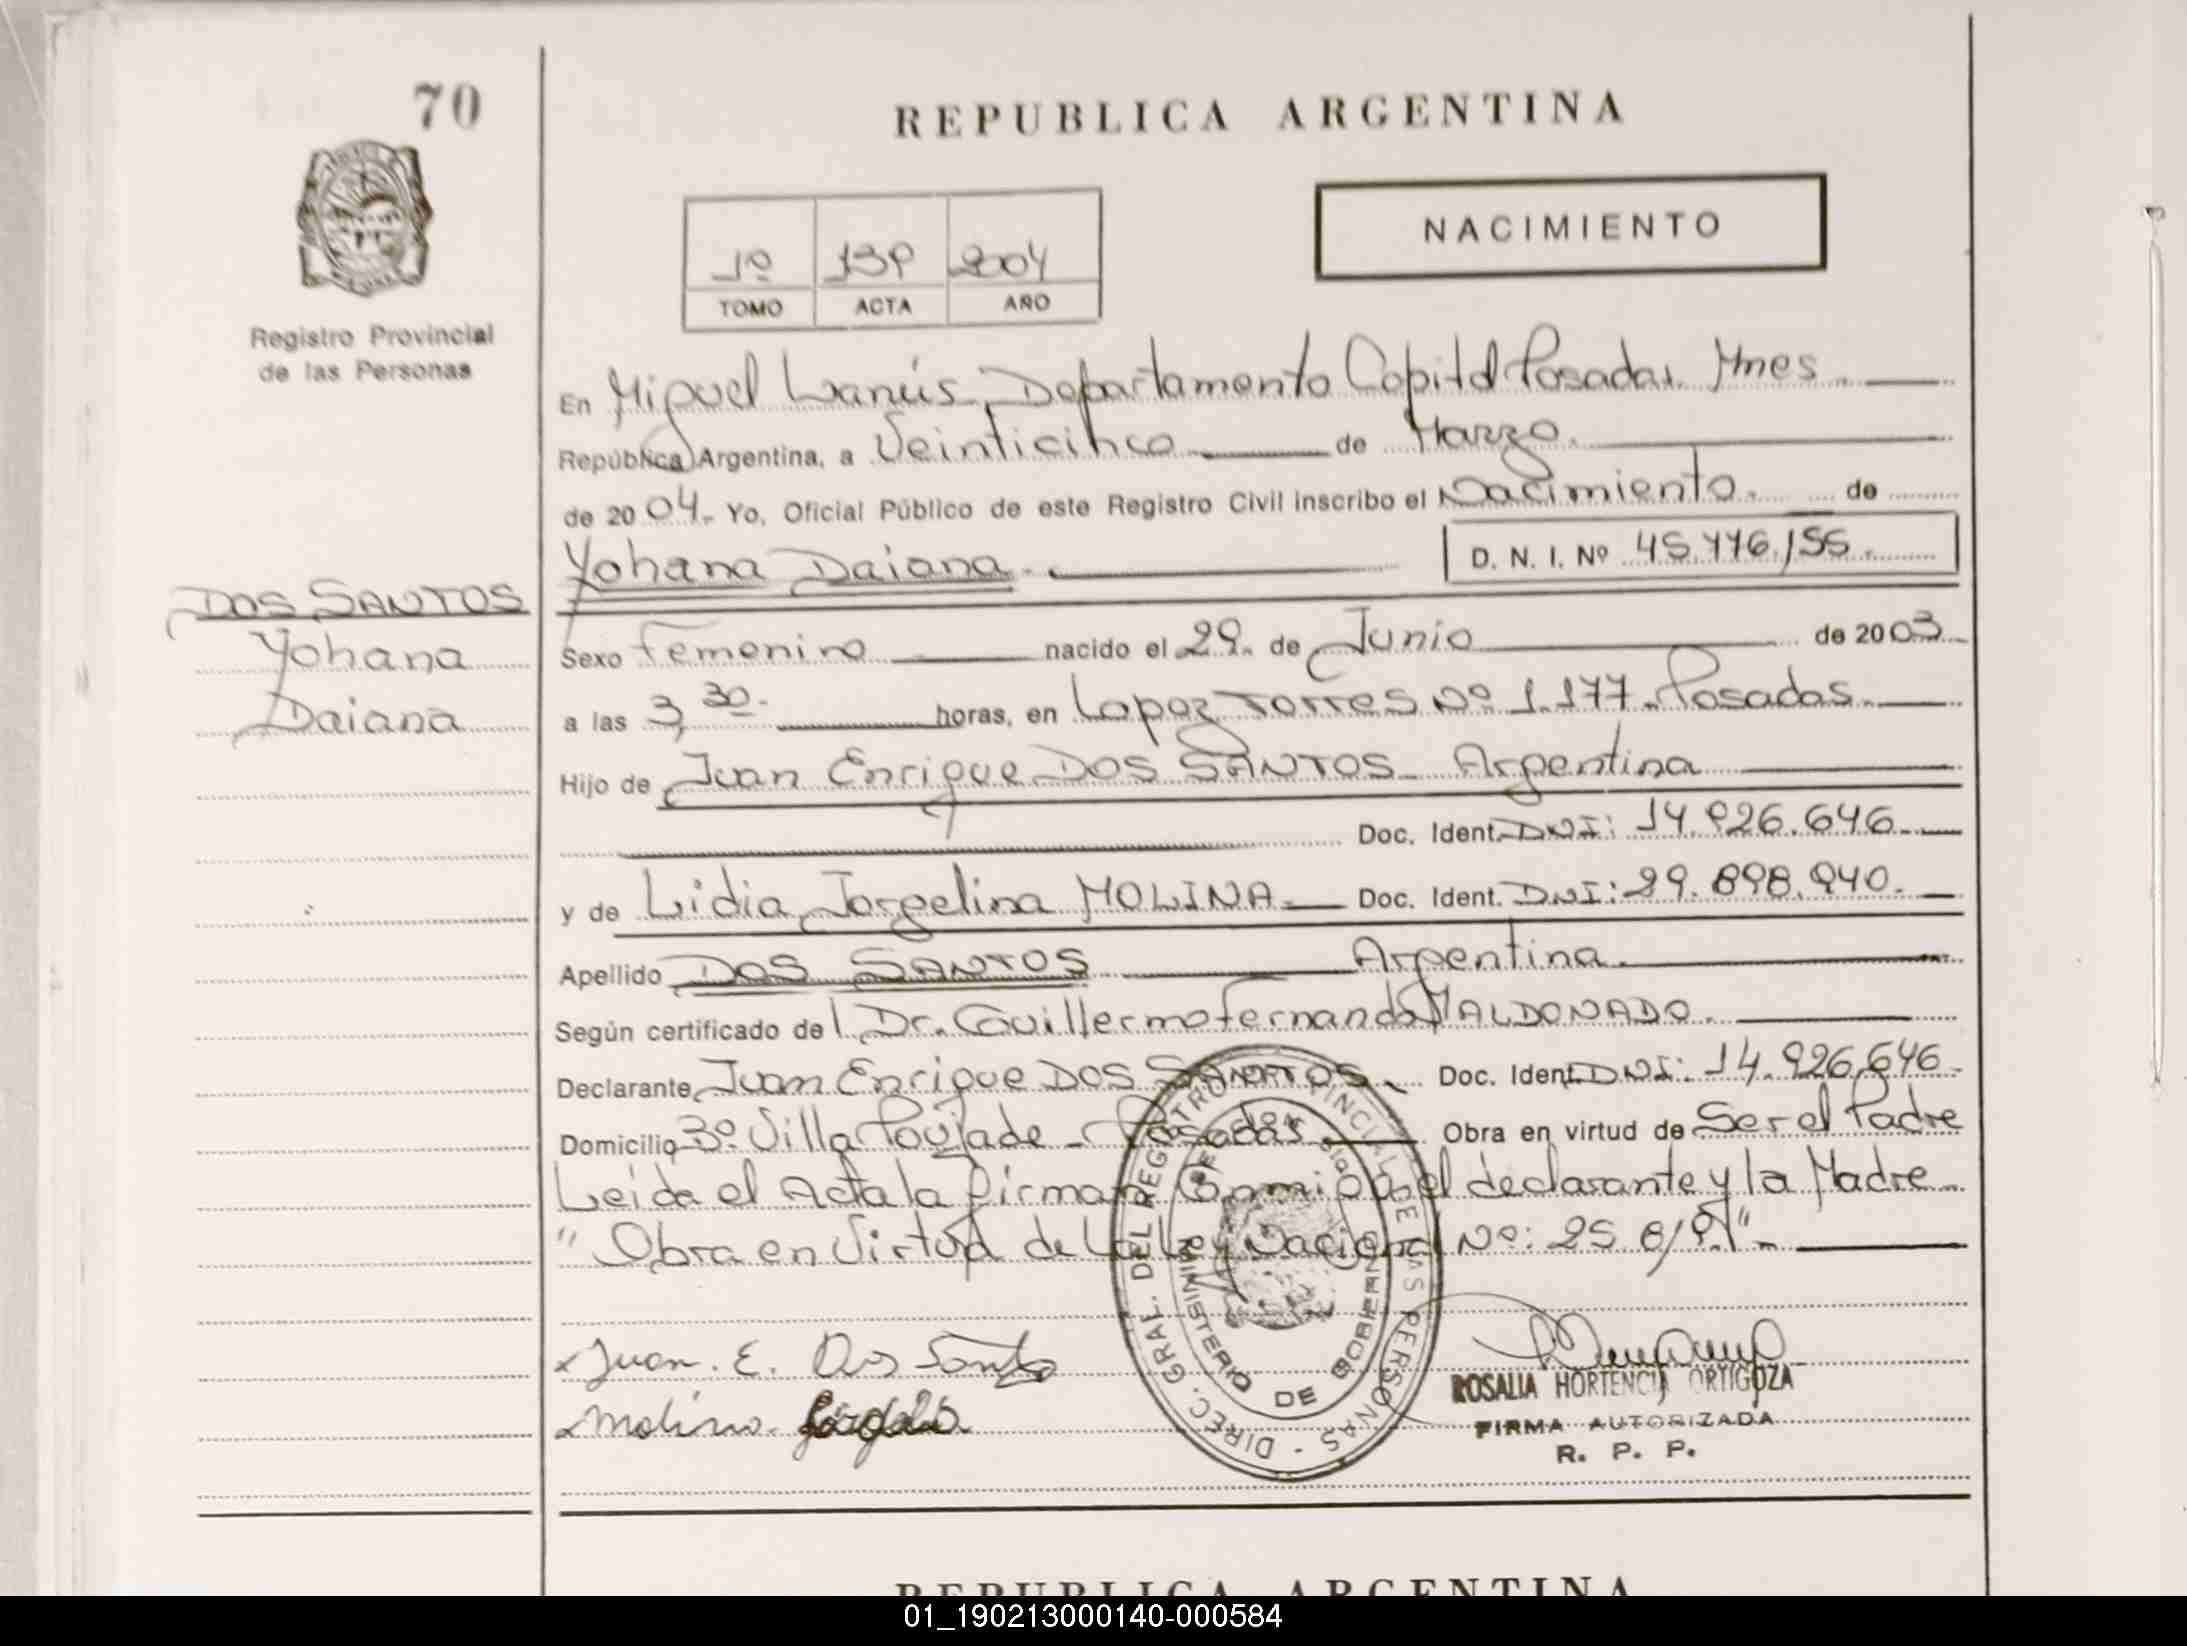 70
REPUBLICA ARGENTINA
NACIMIENTO
1º 139 2004
TOMO ACTA AÑO
Registro Provincial
de las Personas
En Miguel Lanús, Departamento Capital Posadas Mnes
República Argentina, a Veinticinco de Marzo.
de 2004. Yo, Oficial Público de este Registro Civil inscribo el Nacimiento. de
Yohana Daiana. D. N. I. Nº 45.776.155.
DOS SANTOS
Yohana
Daiana
Sexo Femenino nacido el 29. de Junio de 2003
a las 3,30. horas, en Lopez Torres Nº 1.177. Posadas.
Hijo de Juan Enrique DOS SANTOS Argentina
Doc. Ident. DNI: 14.926.646.
y de Lidia Jorgelina MOLINA. Doc. Ident. DNI: 29.898.940.
Apellido DOS SANTOS Argentina.
Según certificado del Dr. Guillermo Fernando MALDONADO.
Declarante Juan Enrique DOS SANTOS. Doc. Ident. DNI: 14.926.646.
Domicilio 3º. Villa Poujade - Posadas Obra en virtud de Ser el Padre
Leída el Acta la firman Conmigo el declarante y la Madre
" Obra en Virtud de la ley Nacional Nº:
DIREC. GRAL. DEL REGISTRO PROVINCIAL DE LAS PERSONAS -
MINISTERIO DE GOBIERNO
Juan. E. Dos Santos
Molina.
ROSALIA HORTENCIA ORTIGOZA
FIRMA AUTORIZADA
R. P. P.
REPUBLICA ARGENTINA
01_190213000140-000584